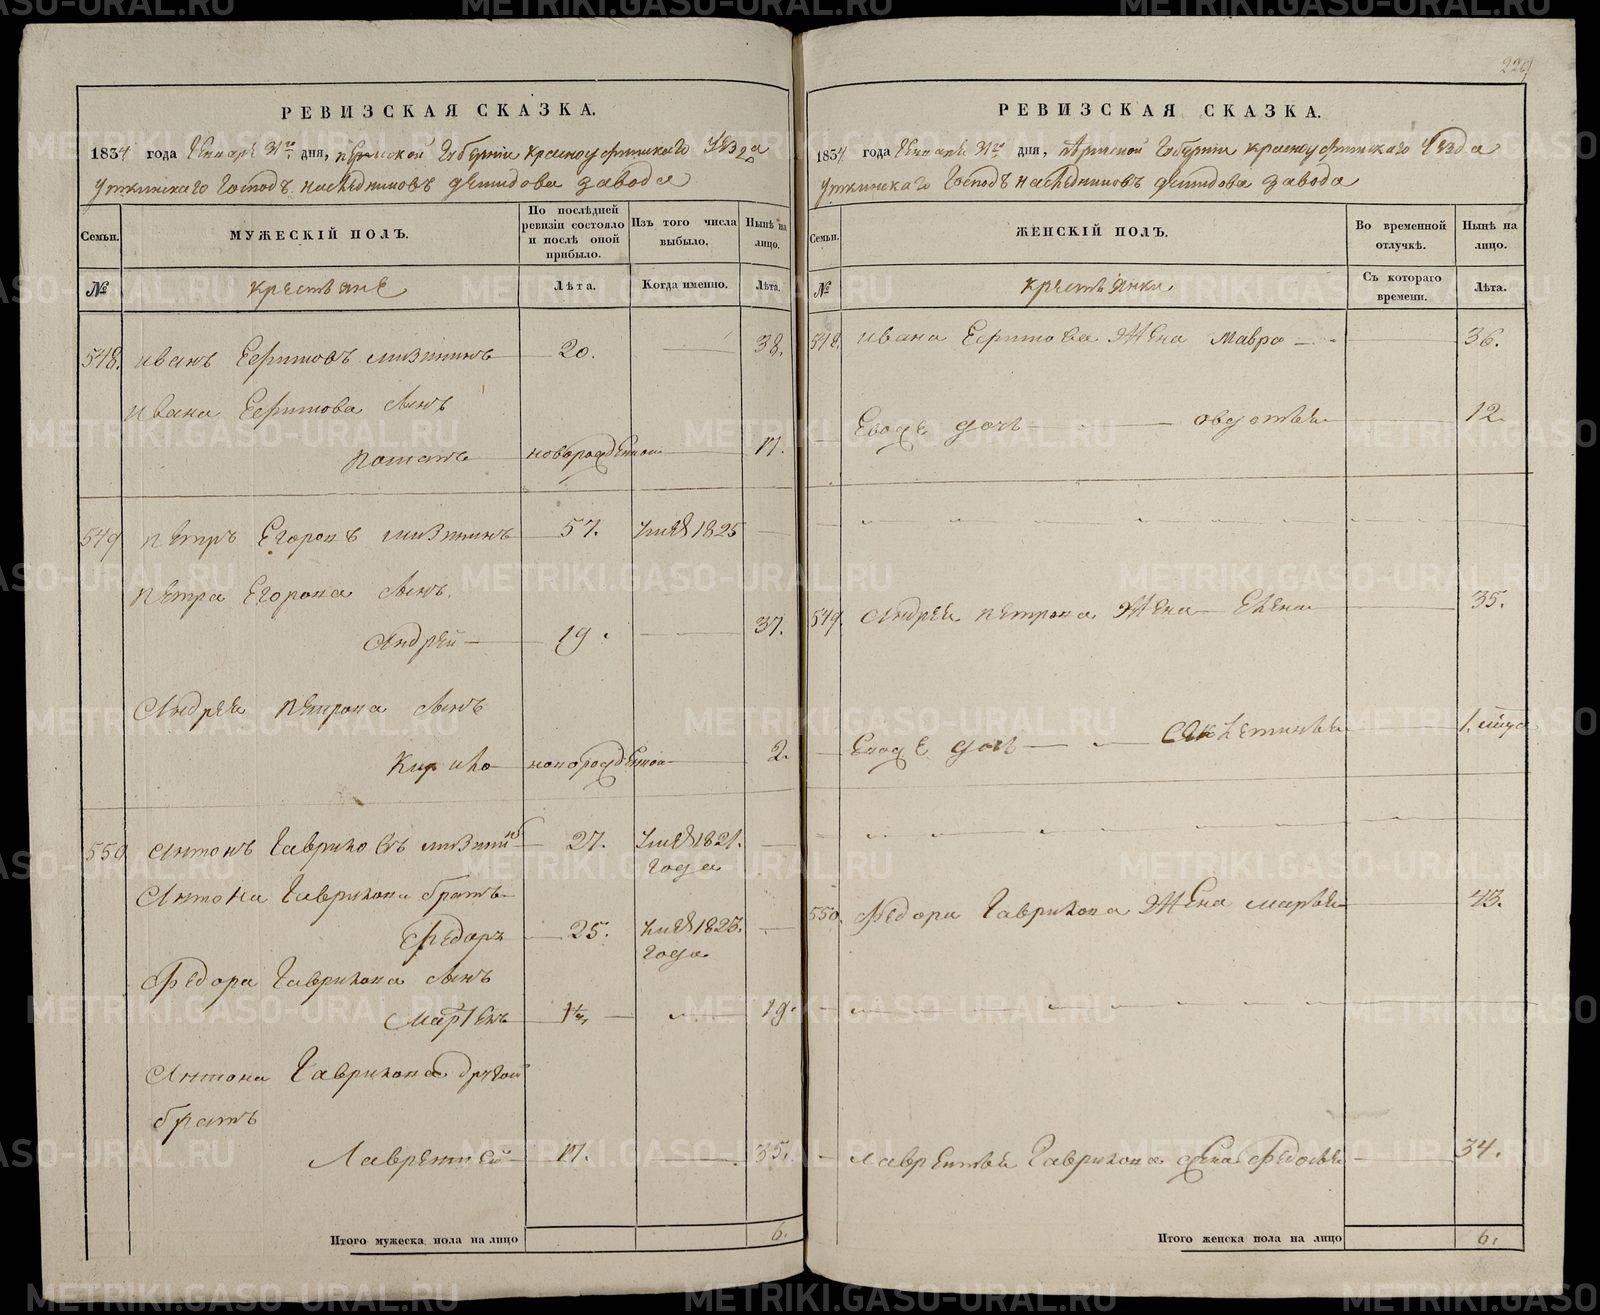 РЕВИЗСКАЯ СКАЗКА.
1834 года Генваря 31го дня, Пермской Губерніи Красноуфимскаго Уѣзда
Уткинскаго Господъ наслѣдниковъ Демидова завода
Семьи.
МУЖЕСКІЙ ПОЛЪ.
По послѣдней ревизіи состояло и послѣ оной прибыло.
Изъ того числа выбыло.
Нынѣ на лицо.
№
крестьяне
Лѣта.
Когда именно.
Лѣта.
548. Иванъ Ефимовъ Мизининъ 20. 38.
Ивана Ефимова сынъ
Потапъ новорожденной 17.
549 Петръ Егоровъ Мизининъ 57. Умеръ 1825
Петра Егорова сынъ
Андрей 19. 37.
Андрея Петрова сынъ
Кирило новорожденной 2.
550 Антонъ Гавриловъ 27. Умеръ 1821. года
Антона Гаврилова братъ
Федоръ 25. Умеръ 1825. года
Федора Гаврилова сынъ
19.
Антона Гаврилова другой
братъ
Лаврентей 17. 35.
Итого мужеска пола на лицо 6.
229
РЕВИЗСКАЯ СКАЗКА.
1834 года Генваря 31го дня, Пермской Губерніи Красноуфимскаго Уѣзда
Уткинскаго Господъ наслѣдниковъ Демидова завода
Семьи.
ЖЕНСКІЙ ПОЛЪ.
Во временной отлучкѣ.
Нынѣ на лицо.
№
крестьянки
Съ котораго времени.
Лѣта.
548. Ивана Ефимова жена Мавра 36.
Евоже дочь Овдотья 12.
549 Андрея Петрова жена Елена 35.
Евоже дочь 1.
550. Федора Гаврилова жена Марья 43.
Лаврентья Гаврилова жена Федосья 34.
Итого женска пола на лицо 6.
METRIKI.GASO-URAL.RU